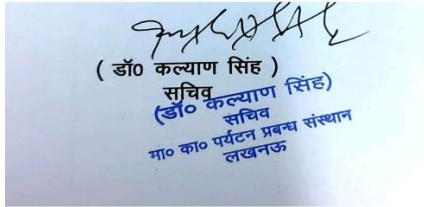 ( डॉ0 कल्याण सिंह )
सचिव
(डॉ० कल्याण सिंह)
सचिव
मा० का० पर्यटन प्रबन्ध संस्थान
लखनऊ